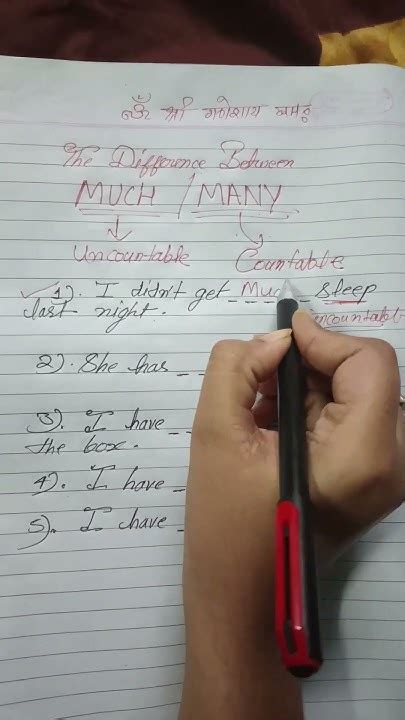 ॐ श्री गणेशाय नमः
The Difference Between
MUCH / MANY
Uncountable Countable
1). I didn't get _ Much _ sleep
last night. uncountabl
2). She has _ _
3). I have _
the box.
4). I have _
5). I have _